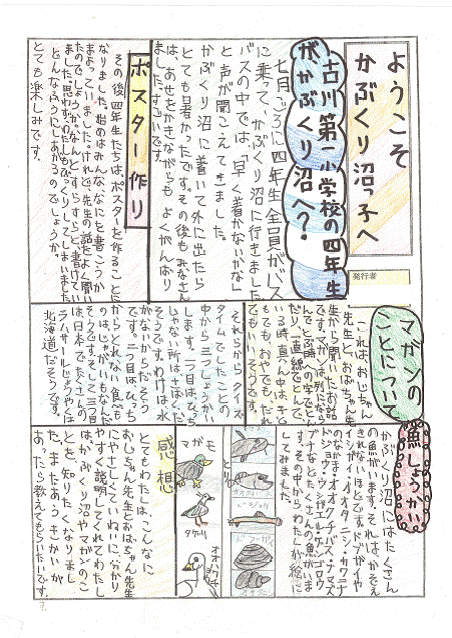 ようこそ
かぶくり沼っ子へ
発行者
古川第一小学校の四年生
が、かぶくり沼へ?
七月ごろに四年生全員がバス
に乗って、かぶくり沼に行きました。
バスの中では、「早く着かないかな」
と声が聞こえてきました。
かぶくり沼に着いて外に出たら
とても暑かったです。その後もみなさん
は、あせをかきながらも よくがんばり
ました。すごいです。
ポスター作り
その後四年生たちは、ポスターを作ることに
なりました。始めはみんな、なにを書こうか
まよっていました。けれど、先生の話をよく聞い
たのでしょうか。なんとすらすらと、書けてい
ました。思わず、わたしもびっくりしてしまいました。
どんなふうにしあがるのでしょうか。
とても楽しみです。
マガンの
ことについて
これは、おじちゃん
先生と、おばちゃん先
生から聞いたお話
です。マガンは、列になって
とんでいる
それからクイズ
タイムでしたことの
中から三つしょうかい
します。一つ目は、ひっち
じゃない所はさばく
そうです。わけは水
がないからだそう
です。二つ目は、ひっち
からとれない食べも
のは、じゃがいもなんだ
そうです。そして三つ目
は日本でたくさんの
ラムサールじょうやくは
北海道だそうです。
魚しょうかい
かぶくり沼にはたくさん
の魚がいます。それは、かぞえ
きれないほどです。
してみました。
マガモ
オオハクチョウ
感想
とてもわたしは、こんなに
おじちゃん先生とおばちゃん先生
にやさしくていねいに、分かり
やすく説明してくれてわたし
は、かぶくり沼やマガンのこ
とを知りたくなりまし
た。またあうきかいが
あったら教えてもらいたいです。